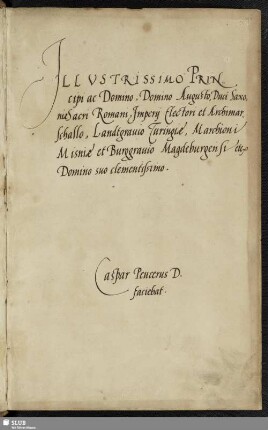 ILLVSTRISSIMO PRIN
cipi ac Domino, Domino Augusto, Duci Saxo,
niæ Sacri Romani Imperij Electori et Archimar,
schallo, Landgrauio Turingiæ, Marchioni
Misniæ et Burggrauio Magdeburgensi etc
Domino suo clementissimo.
Caspar Peucerus D.
faciebat.
SLUB